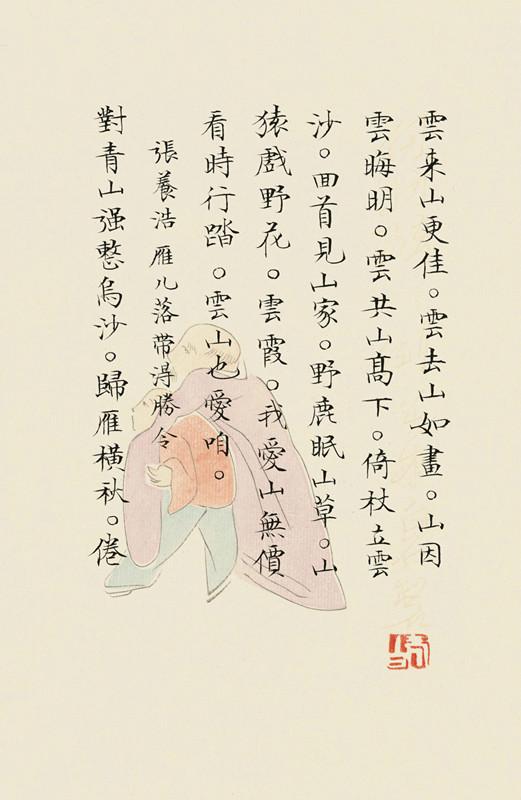 雲来山更佳。雲去山如畫。山因
雲晦明。雲共山髙下。倚杖立雲
沙。回首見山家。野鹿眠山草。山
猿戲野花。雲霞。我愛山無價
看時行踏。雲山也愛咱。
張養浩 雁儿落带得勝令
對青山强整烏沙。歸雁横秋。倦